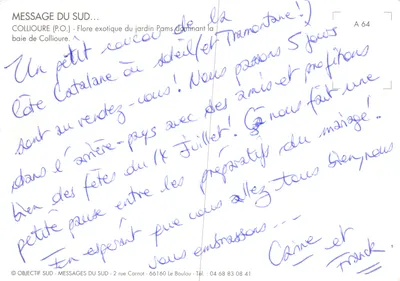 MESSAGE DU SUD...
COLLIOURE (P.O.) - Flore exotique du jardin Pams dominant la
baie de Collioure.
A 64
Un petit coucou de la
Côte Catalane où soleil (et Tramontane !)
sont au rendez-vous ! Nous passons 5 jours
dans l'arrière-pays avec des amis et profitons
bien des fêtes du 14 Juillet ! Ça nous fait une
petite pause entre les préparatifs du mariage !
En espérant que vous allez tous bien, nous
vous embrassons ---
et
Franck.
© OBJECTIF SUD - MESSAGES DU SUD - 2 rue Carnot - 66160 Le Boulou - Tél. : 04 68 83 08 41